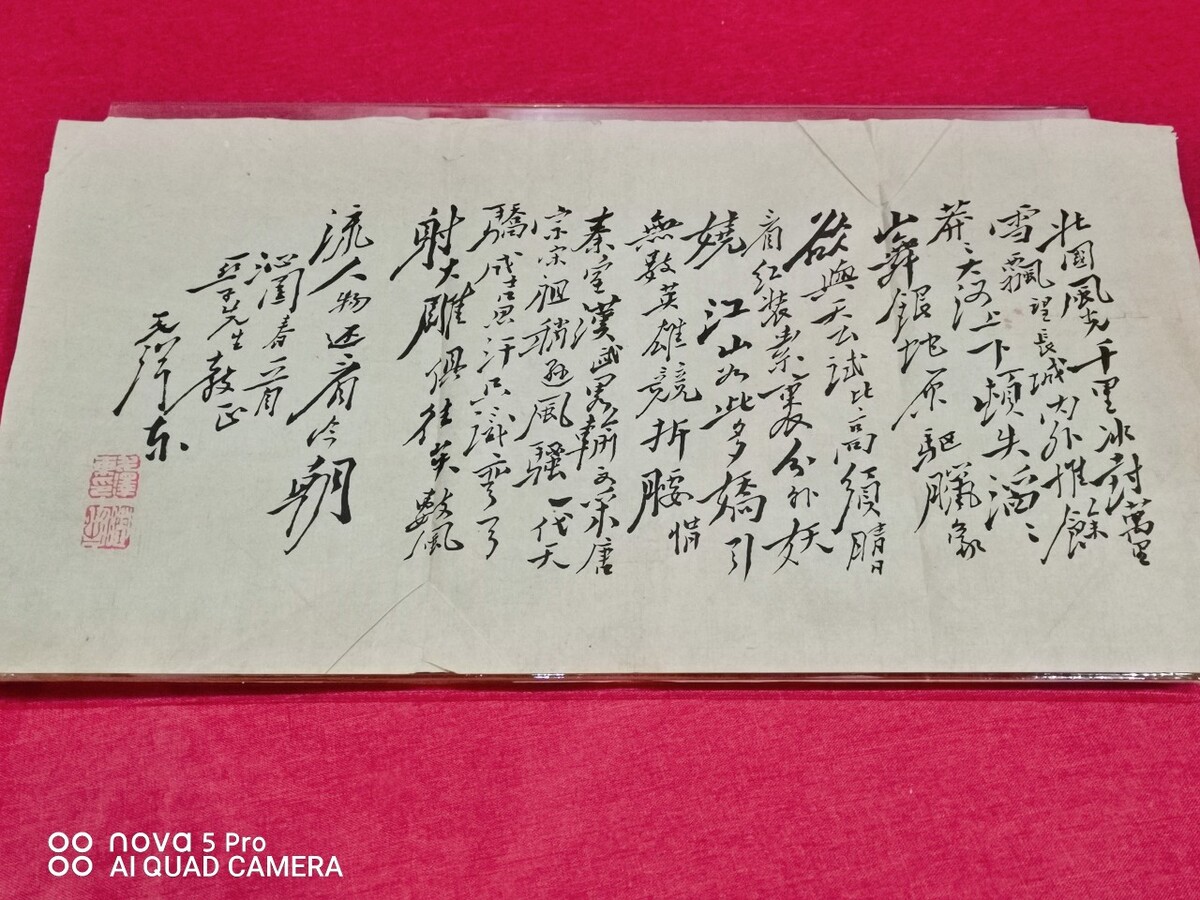 北國風光千里冰封萬里
雪飄望長城内外惟餘
莽〻大河上下頓失滔〻
山舞銀蛇原驅臘象
欲與天公試比高須晴日
看紅裝素裹分外妖
嬈 江山如此多嬌引
無數英雄競折腰惜
秦皇漢武畧輸文采唐
宗宋祖稍遜風騷一代天
驕成吉思汗只識彎弓
射大雕俱往矣數風
流人物还看今朝
沁園春一首
亞子先生教正
毛澤东
毛澤東印
潤之
nova 5 Pro
AI QUAD CAMERA